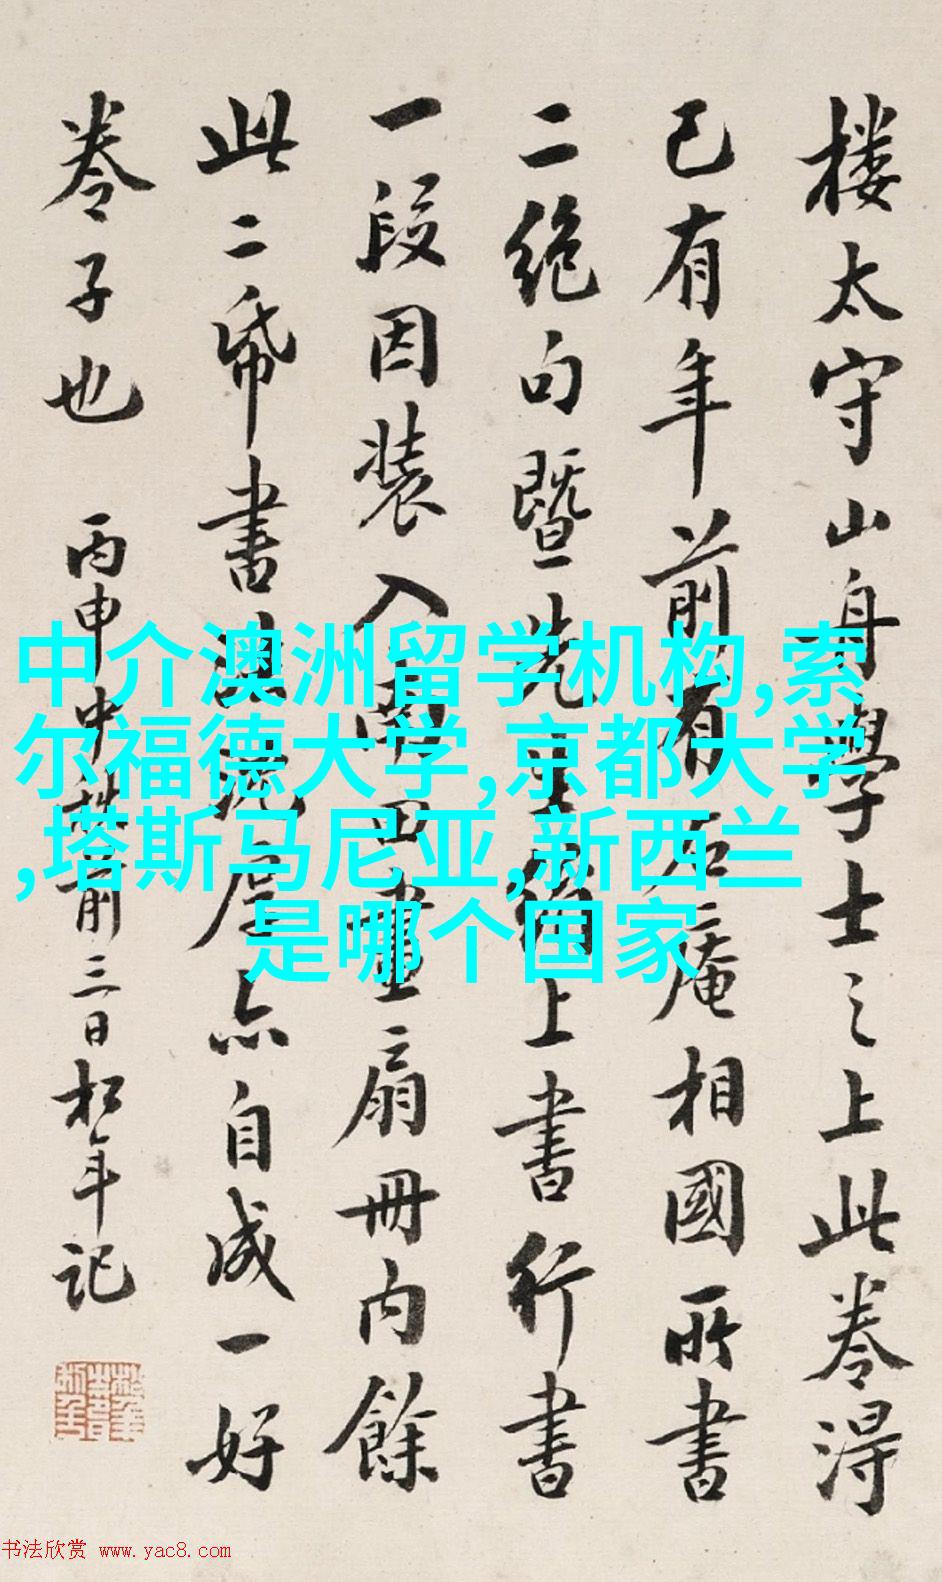 楼太守山舟學士之上此卷得
已有年前有石庵相國所書
二絶句暨先上書行書
一段因装入南田畫扇册内餘
此二帋書漢亦自成一好
卷子也
丙申中秋前三日松年記
中介澳洲留学机构,索
尔福德大学,京都大学
,塔斯马尼亚,新西兰
是哪个国家
书法欣赏 www.yac8.com